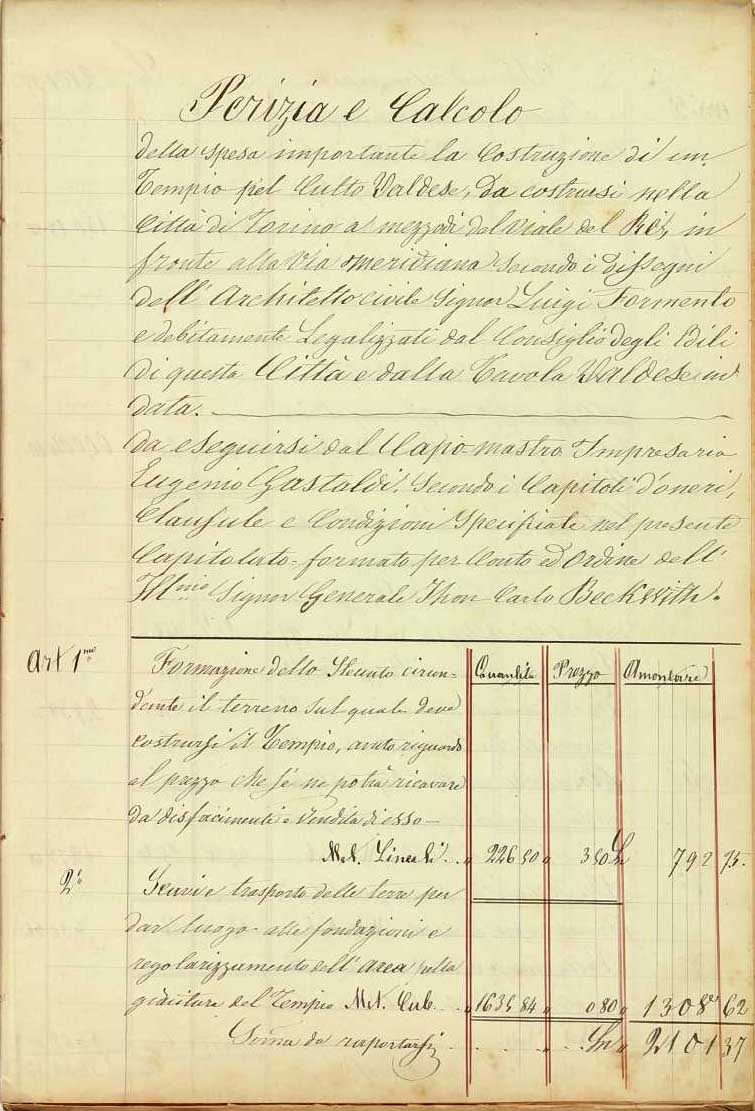 Perizia e Calcolo
della spesa importante la Costruzione di un
Tempio pel Culto Valdese, Da costrursi nella
Città di Torino a mezzodì del Viale del Rè, in
fronte alla Via Meridiana secondo i dissegni
dell' Architetto Civile Signor Luigi Formento
e debitamente Legalizzati dal Consiglio degli Edili
di questa Città e dalla Tavola Valdese in
data.
da eseguirsi dal Capo-mastro Impresario
Eugenio Gastaldi. Secondo i Capitoli d'oneri,
Clausule e Condizioni Specifiate nel presente
Capitolato formato per Conto ed Ordine dell'
Ill.mo Signor Generale Jhon Carlo Beckwith.
Art 1.mo Formazione dello Steccato circon- Quantità Prezzo Amontare
dante il terreno sul quale deve
costrursi il Tempio, avuto riguardo
al prezzo che se ne potrà ricavare
da disfacimento e Vendita di esso
Met. Lineali .. 226 50 " 3 50 L 792 75.
2° Scavi e trasporto delle terre per
dar luogo alle fondazioni e
regolarizzamento dell' area pella
giacitura del Tempio Met. Cub. .. 1635 84 " 0 80 " 1308 62
Soma da raportarsi 2101 37